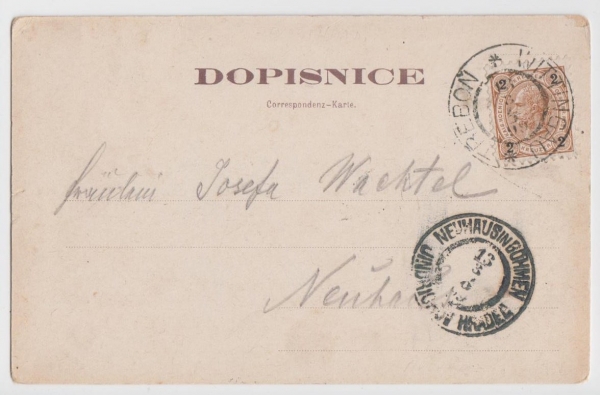 DOPISNICE
Correspondenz-Karte.
WITTINGAU
TŘEBOŇ
2
2
2
2
Fräulein Josefa Wachtel
NEUHAUS IN BÖHMEN
13
3
HRADEC
Neuhaus